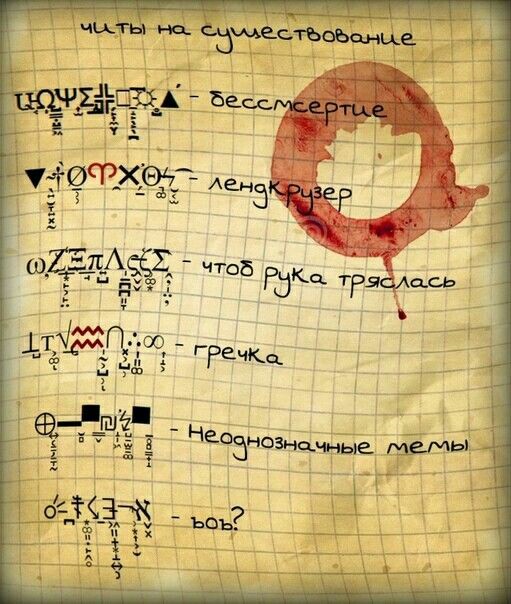 читы на существование
ЩΩΨΣ╬□☼▲ - бессмсертие
▼÷Ø♈×Θϟ⌒ - лендкрузер
ωΖΞπΛξΣ - чтоб рука тряслась
⊥τ√♒∩∴∞ - гречка
⊕—■₪ϟ■ - Неоднозначные мемы
‡Ɛ¬ℵ - ъоъ?